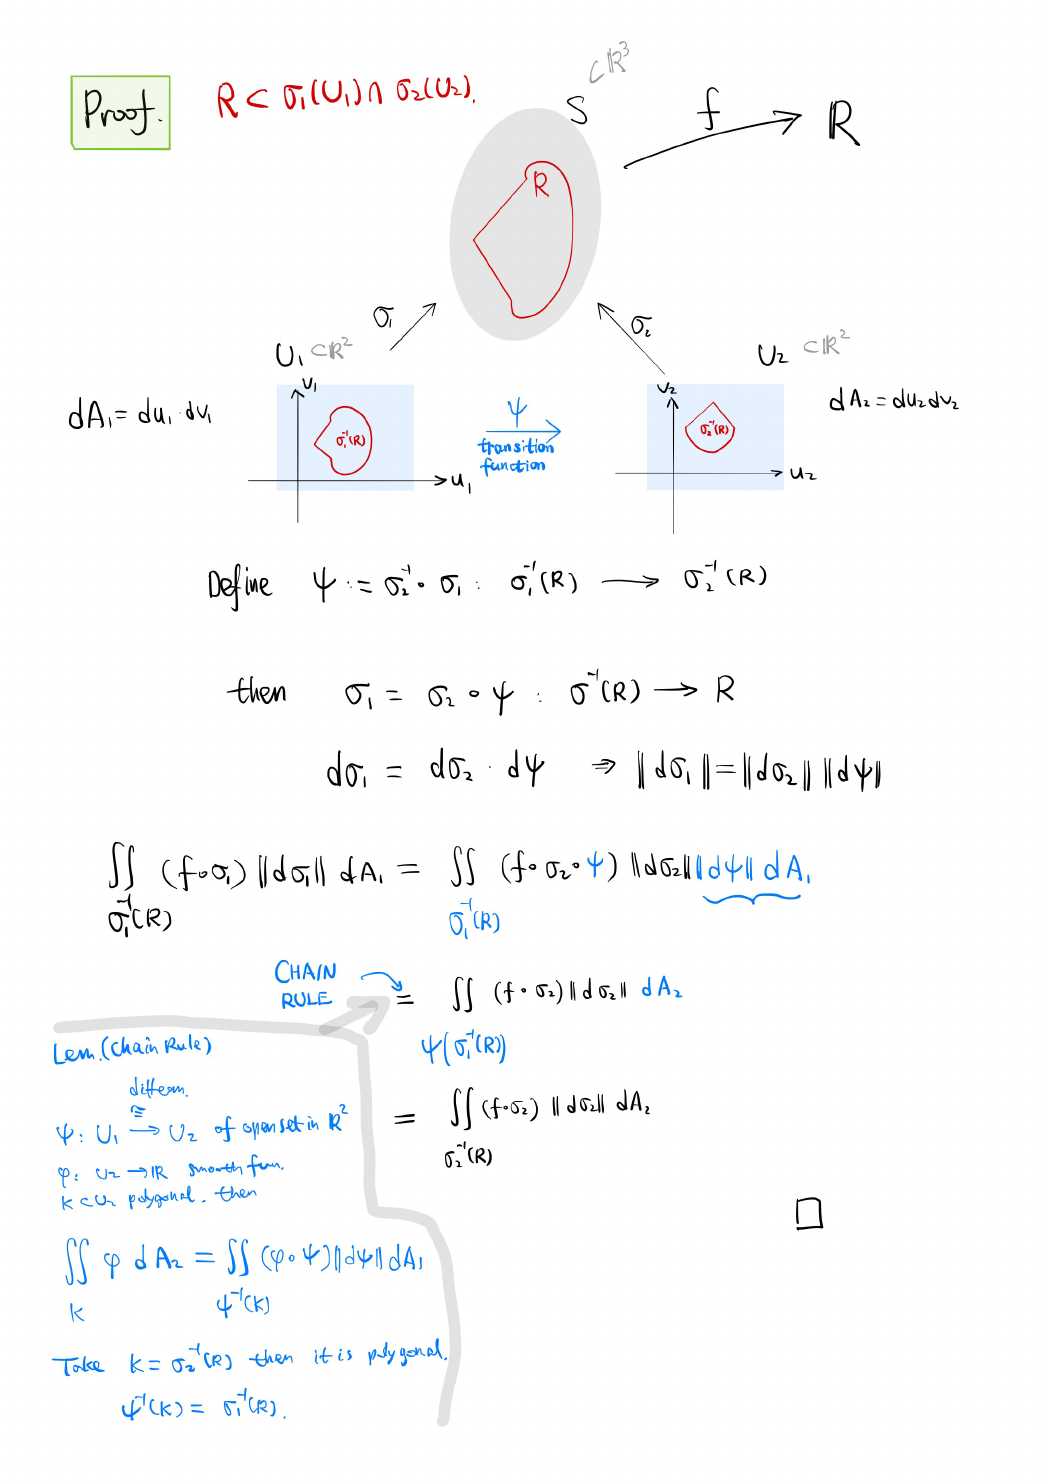 Proof.
R ⊂ σ₁(U₁) ∩ σ₂(U₂).
S ⊂ ℝ³
f
ℝ
R
σ₁
σ₂
U₁ ⊂ ℝ²
U₂ ⊂ ℝ²
dA₁ = du₁·dv₁
v₁
σ₁⁻¹(R)
u₁
ψ
transition
function
v₂
σ₂⁻¹(R)
u₂
dA₂ = du₂dv₂
Define ψ := σ₂⁻¹ ∘ σ₁ : σ₁⁻¹(R) ⟶ σ₂⁻¹(R)
then σ₁ = σ₂ ∘ ψ : σ⁻¹(R) ⟶ R
dσ₁ = dσ₂ · dψ ⇒ ‖dσ₁‖ = ‖dσ₂‖ ‖dψ‖
∬ (f∘σ₁) ‖dσ₁‖ dA₁ = ∬ (f∘σ₂∘ψ) ‖dσ₂‖ ‖dψ‖ dA₁
σ₁⁻¹(R) σ₁⁻¹(R)
CHAIN
RULE
= ∬ (f∘σ₂) ‖dσ₂‖ dA₂
ψ(σ₁⁻¹(R))
= ∬ (f∘σ₂) ‖dσ₂‖ dA₂
σ₂⁻¹(R)
□
Lem. (Chain Rule)
diffeom.
≅
ψ: U₁ ⟶ U₂ of open set in ℝ²
φ: U₂ → ℝ smooth fun.
K ⊂ U₂ polygonal. then
∬ φ dA₂ = ∬ (φ∘ψ) ‖dψ‖ dA₁
K ψ⁻¹(K)
Take K = σ₂⁻¹(R) then it is polygonal.
ψ⁻¹(K) = σ₁⁻¹(R).